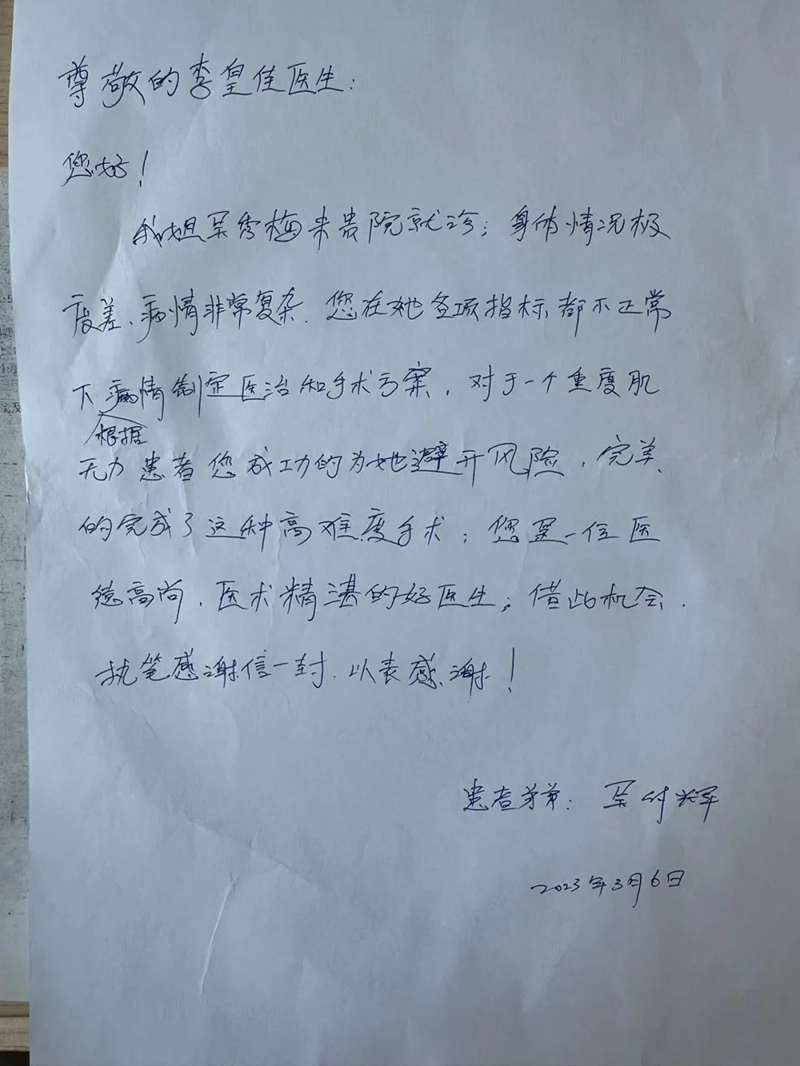 尊敬的李皇佳医生:
您好!
我姐 秀梅来贵院就诊;身体情况极
度差、病情非常复杂.您在她各项指标都不正常
下根据病情制定医治和手术方案,对于一个重度肌
无力患者您成功的为她避开风险,完美
的完成了这种高难度手术;您是一位医
德高尚,医术精湛的好医生;借此机会.
执笔感谢信一封.以表感谢!
患者弟弟: 付辉
2023年3月6日